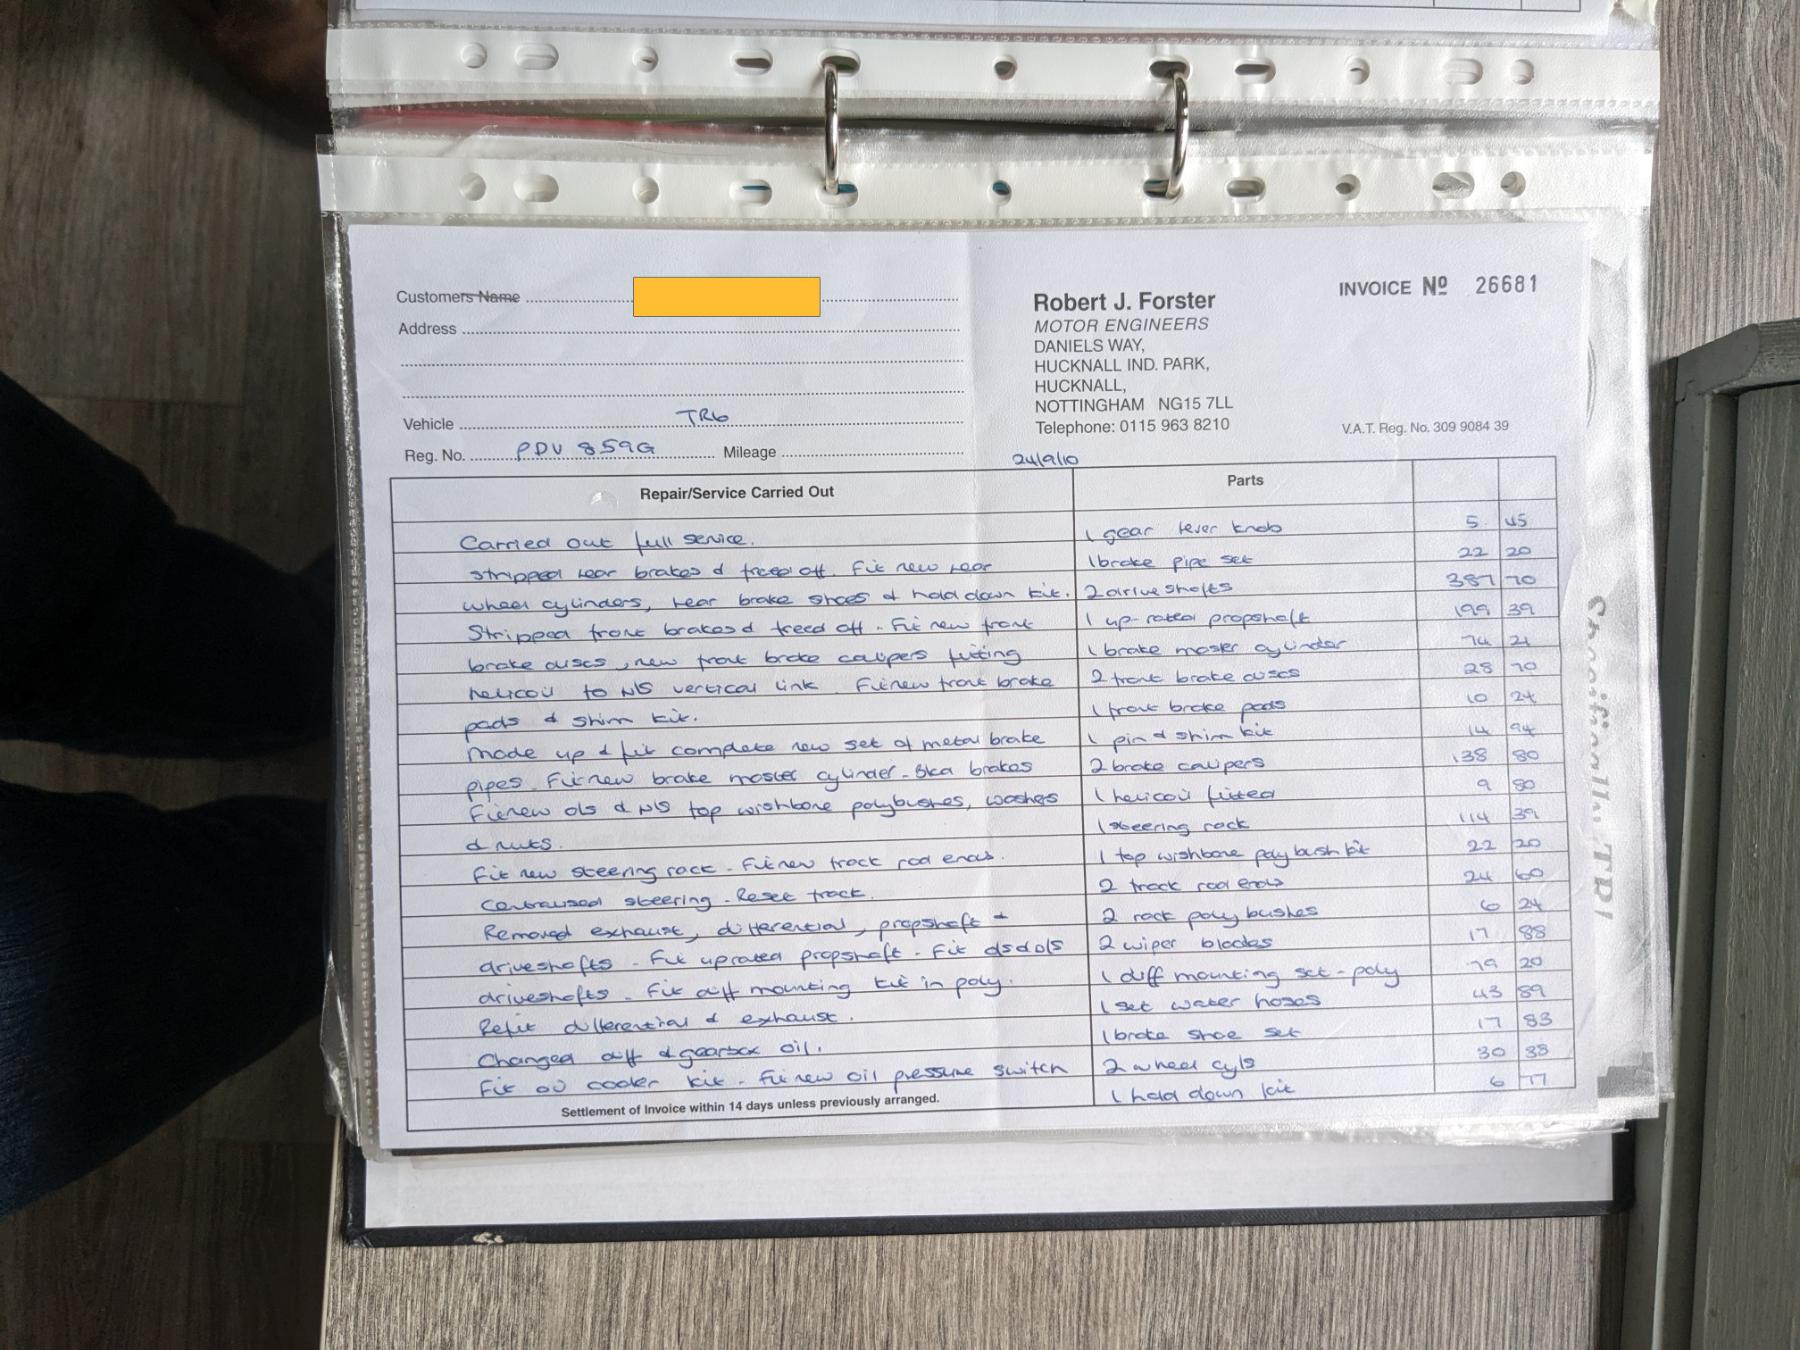 Customers Name
Address
Vehicle TR6
Reg. No. PDV 859G Mileage
Robert J. Forster
MOTOR ENGINEERS
DANIELS WAY,
HUCKNALL IND. PARK,
HUCKNALL,
NOTTINGHAM NG15 7LL
Telephone: 0115 963 8210
INVOICE Nº 26681
V.A.T. Reg. No. 309 9084 39
24/9/10
Repair/Service Carried Out
Carried out full service.
Stripped rear brakes & freed off. Fit new rear
wheel cylinders, rear brake shoes & hold down kit.
Stripped front brakes & freed off. Fit new front
brake discs, new front brake calipers fitting
helicoil to N/S vertical link. Fit new front brake
pads & shim kit.
Made up & fit complete new set of metal brake
pipes. Fit new brake master cylinder. Bled brakes
Fit new o/s & N/S top wishbone polybushes, washers
& nuts.
Fit new steering rack. Fit new track rod ends.
Centralised steering. Reset track.
Removed exhaust, differential, propshaft &
driveshafts. Fit uprated propshaft. Fit d/s & o/s
driveshafts. Fit diff mounting kit in poly.
Refit differential & exhaust.
Changed diff & gearbox oil.
Fit oil cooler kit. Fit new oil pressure switch
Settlement of Invoice within 14 days unless previously arranged.
Parts
1 gear lever knob 5 45
1 brake pipe set 22 20
2 drive shafts 387 70
1 up-rated propshaft 199 39
1 brake master cylinder 74 21
2 front brake discs 28 70
1 front brake pads 10 24
1 pin & shim kit 14 94
2 brake calipers 138 80
1 helicoil fitted 9 80
1 steering rack 114 39
1 top wishbone polybush kit 22 20
2 track rod ends 24 60
2 rack poly bushes 6 24
2 wiper blades 17 88
1 diff mounting set-poly 79 20
1 set water hoses 43 89
1 brake shoe set 17 83
2 wheel cyls 30 38
1 hold down kit 6 77